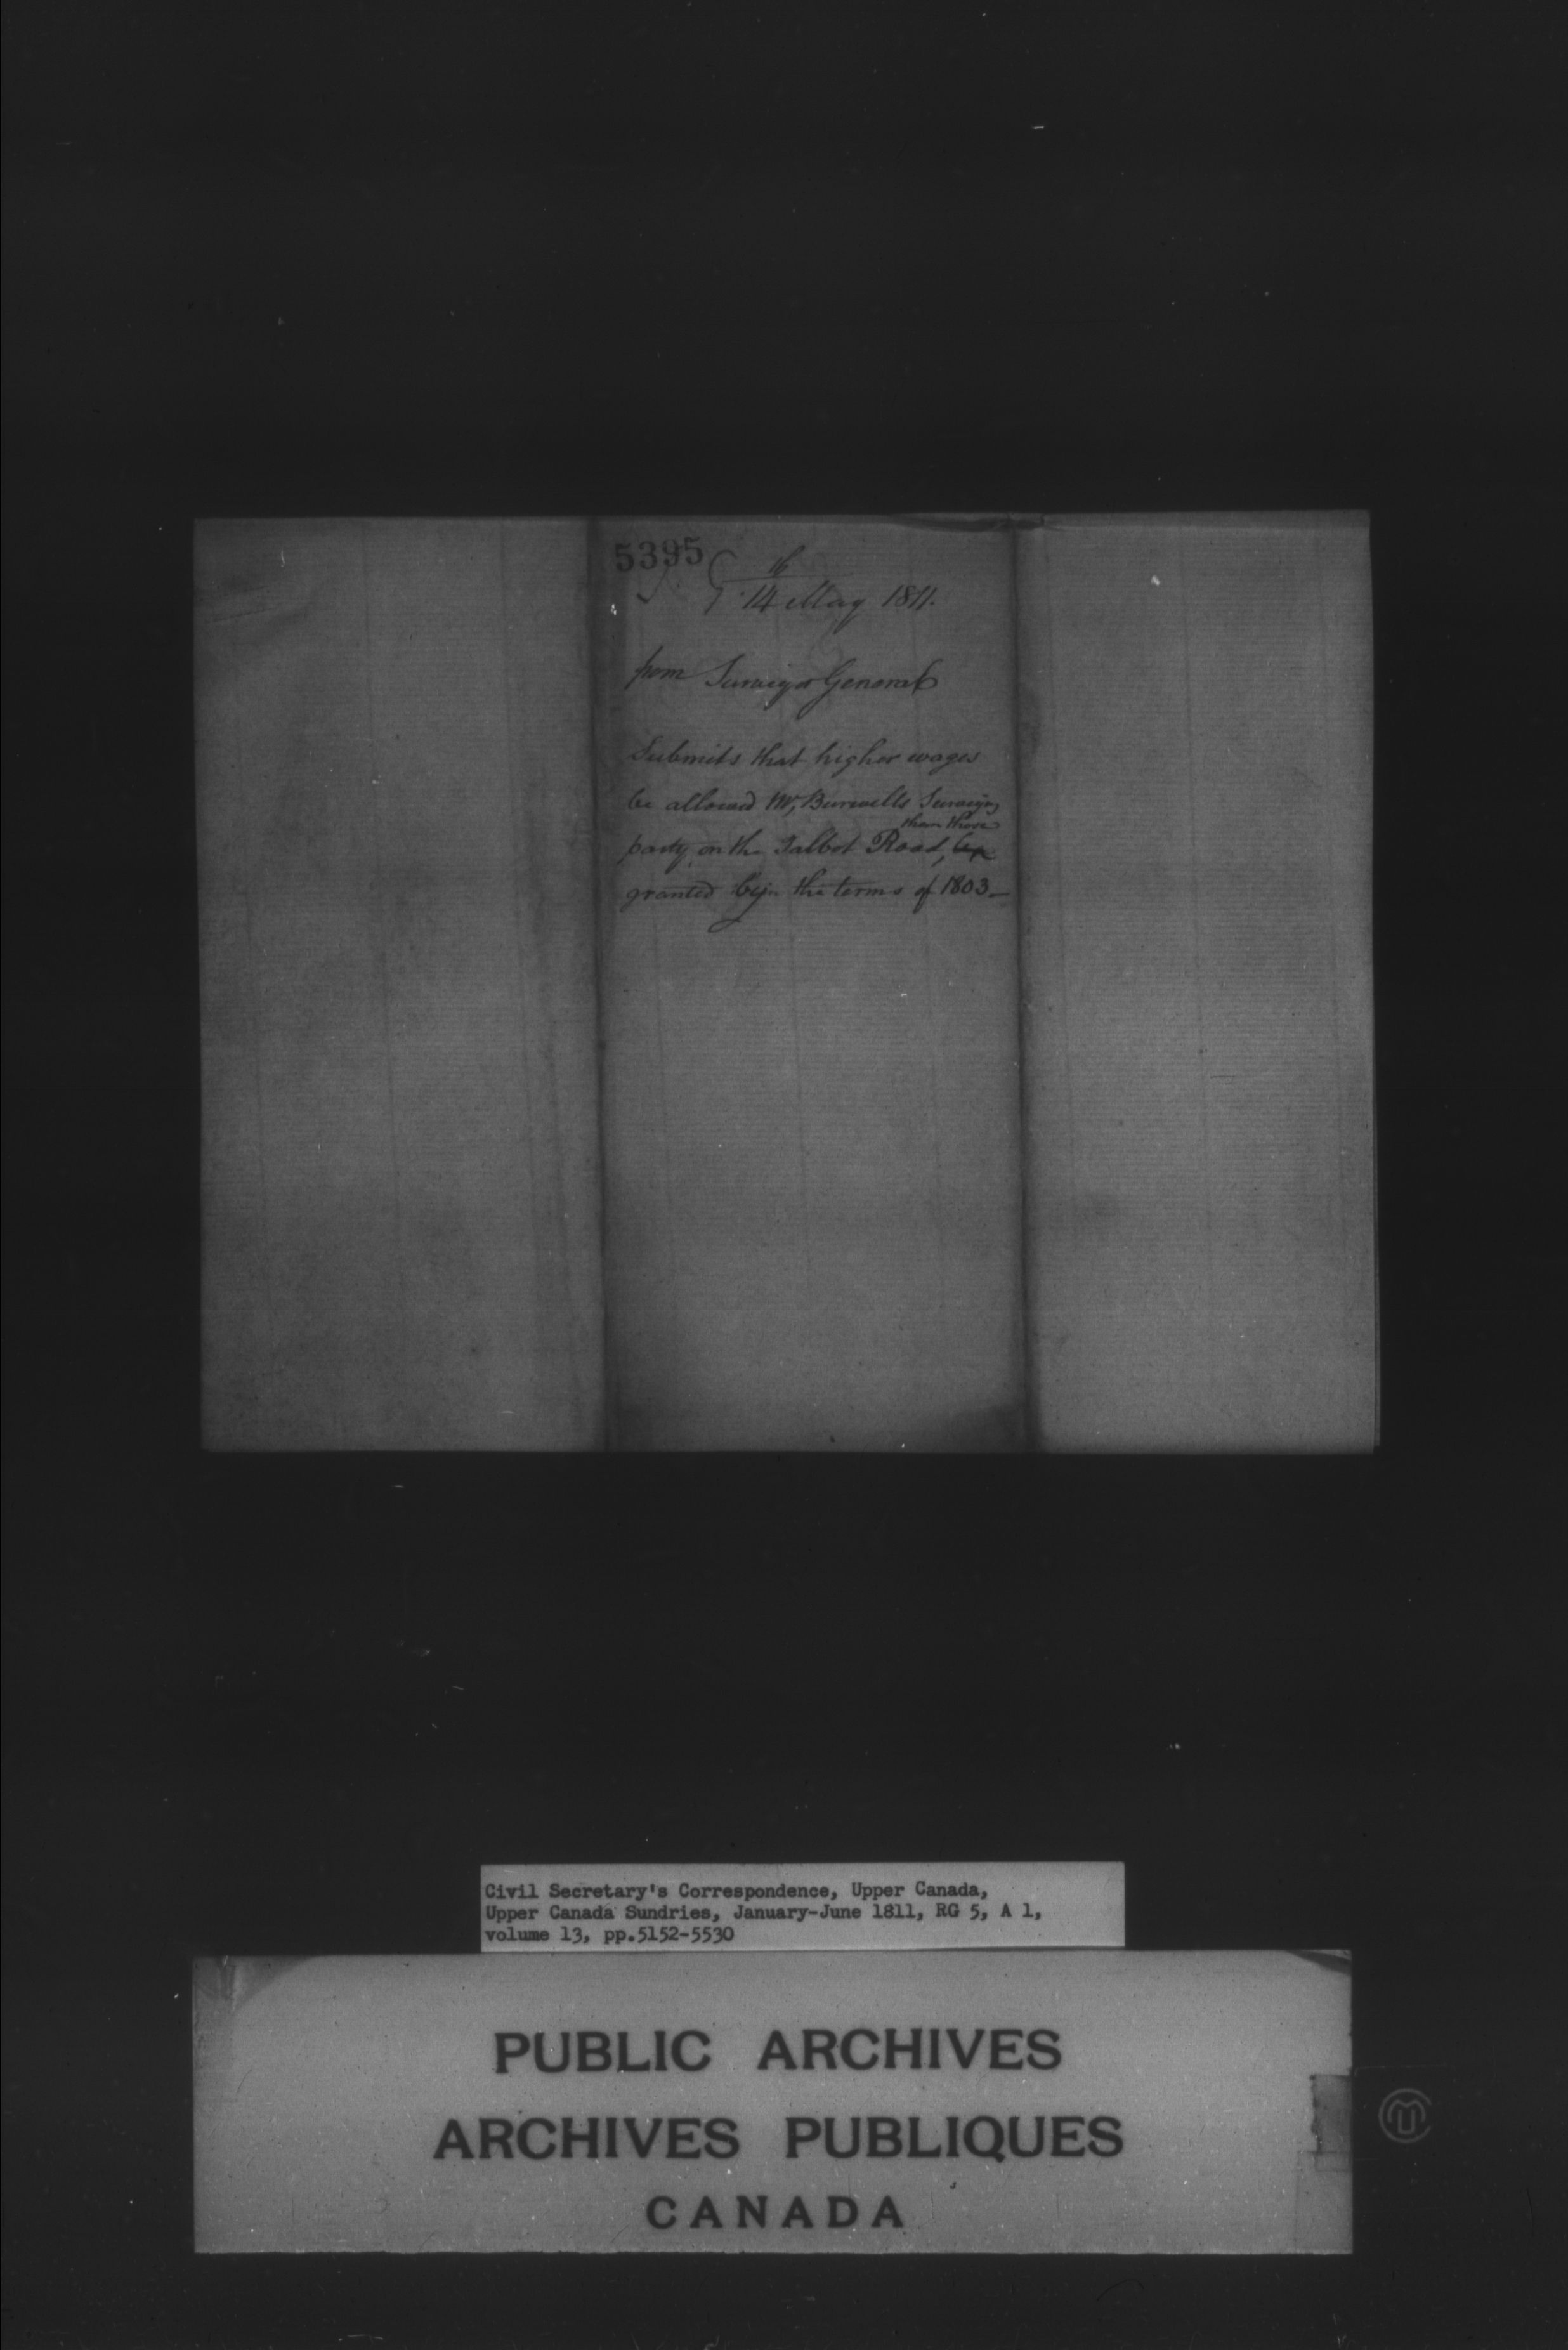 5395
16
14 May 1811.
from Surveyor General
Submits that higher wages
be allowed Mr, Burwells Surveying
than those
party on the Talbot Road,
granted by the terms of 1803 –
Civil Secretary's Correspondence, Upper Canada,
Upper Canada Sundries, January-June 1811, RG 5, A 1,
volume 13, pp.5152-5530
PUBLIC ARCHIVES
ARCHIVES PUBLIQUES
CANADA